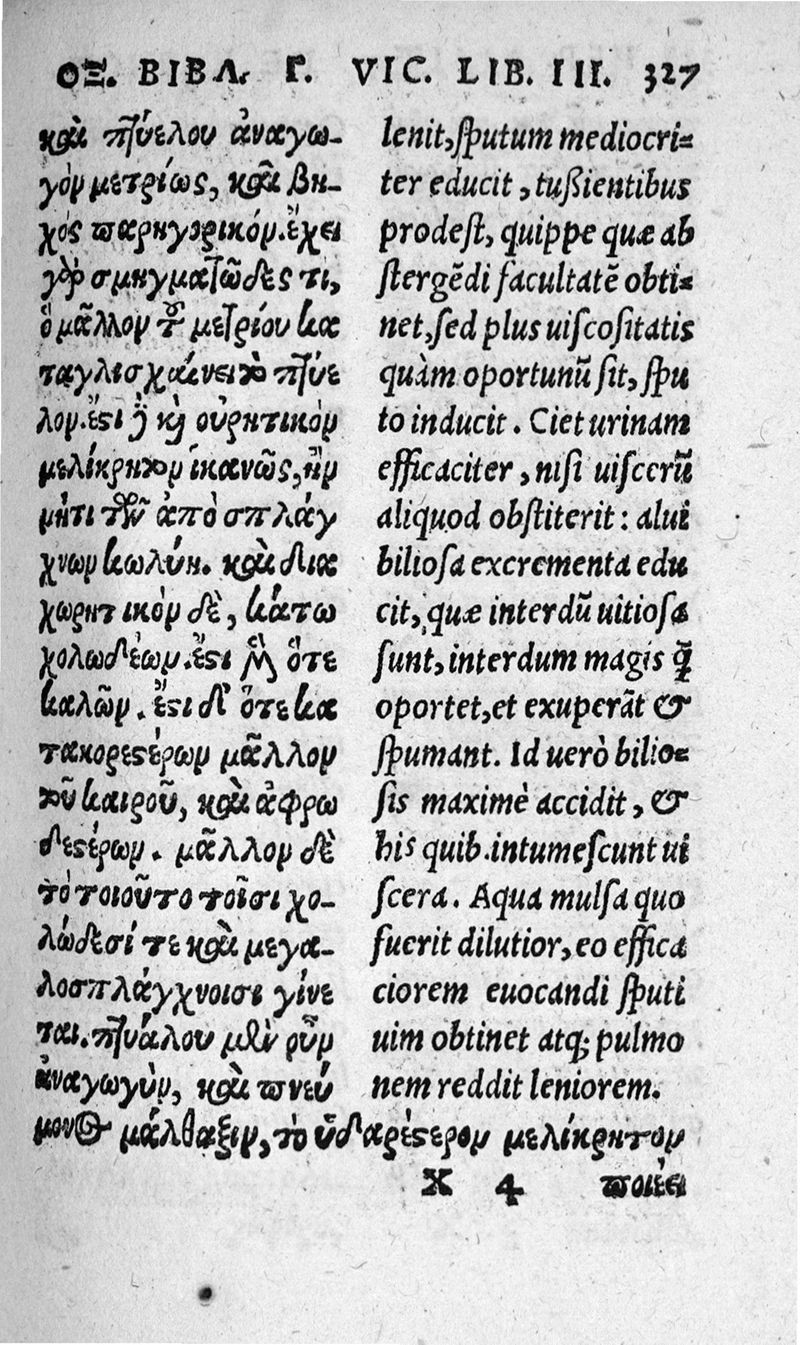 ΟΞ. ΒΙΒΛ. Γ. VIC. LIB. III. 327
καὶ πτυέλου ἀναγω-
γὸν μετρίως, καὶ βη-
χὸς παρηγορικόν. ἔχει
γὰρ σμηγματῶδές τι,
ὃ μᾶλλον τοῦ μετρίου κα
ταγλισχραίνει τὸ πτύε
λον. ἔστι δὲ καὶ οὐρητικὸν
μελίκρητον ἱκανῶς, ἢν
μήτι τῶν ἀπὸ σπλάγ
χνων κωλύῃ. καὶ δια
χωρητικὸν δὲ, κάτω
χολωδέων. ἔστι μὲν ὅτε
καλῶν. ἔστι δ' ὅτε κα
τακορεστέρων μᾶλλον
τοῦ καιροῦ, καὶ ἀφρω
δεστέρων. μᾶλλον δὲ
τὸ τοιοῦτο τοῖσι χο-
λώδεσί τε καὶ μεγα-
λοσπλάγχνοισι γίνε
ται. πτυάλου μὲν οὖν
ἀναγωγὴν, καὶ πνεύ
μονος μάλθαξιν, τὸ ὑδαρέστερον μελίκρητον
lenit, sputum mediocri-
ter educit, tußientibus
prodest, quippe quæ ab
stergēdi facultatē obti-
net, sed plus uiscositatis
quàm oportunū sit, spu
to inducit. Ciet urinam
efficaciter, nisi uiscerū
aliquod obstiterit: alui
biliosa excrementa edu
cit, quæ interdū uitiosa
sunt, interdum magis q̄
oportet, et exuperāt &
spumant. Id uerò bilio-
sis maximè accidit, &
his quib. intumescunt ui
scera. Aqua mulsa quo
fuerit dilutior, eo effica
ciorem euocandi sputi
uim obtinet atq; pulmo
nem reddit leniorem.
X 4 ποιέει